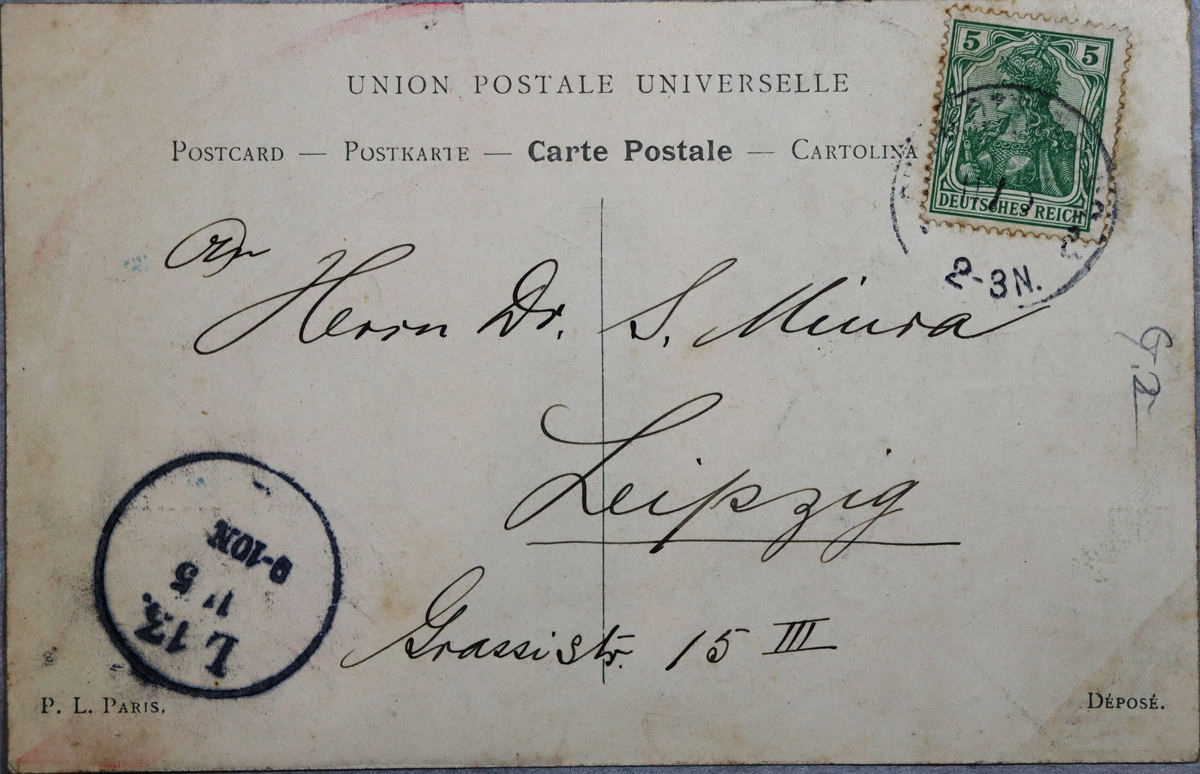 UNION POSTALE UNIVERSELLE
POSTCARD — POSTKARTE — Carte Postale — CARTOLINA
5 5
DEUTSCHES REICH
2-3N.
An
Herrn Dr. S. Miura
Leipzig
Grassistr. 15 III
G.2
L 13.
11 5
9-10N
P. L. PARIS.
DÉPOSÉ.